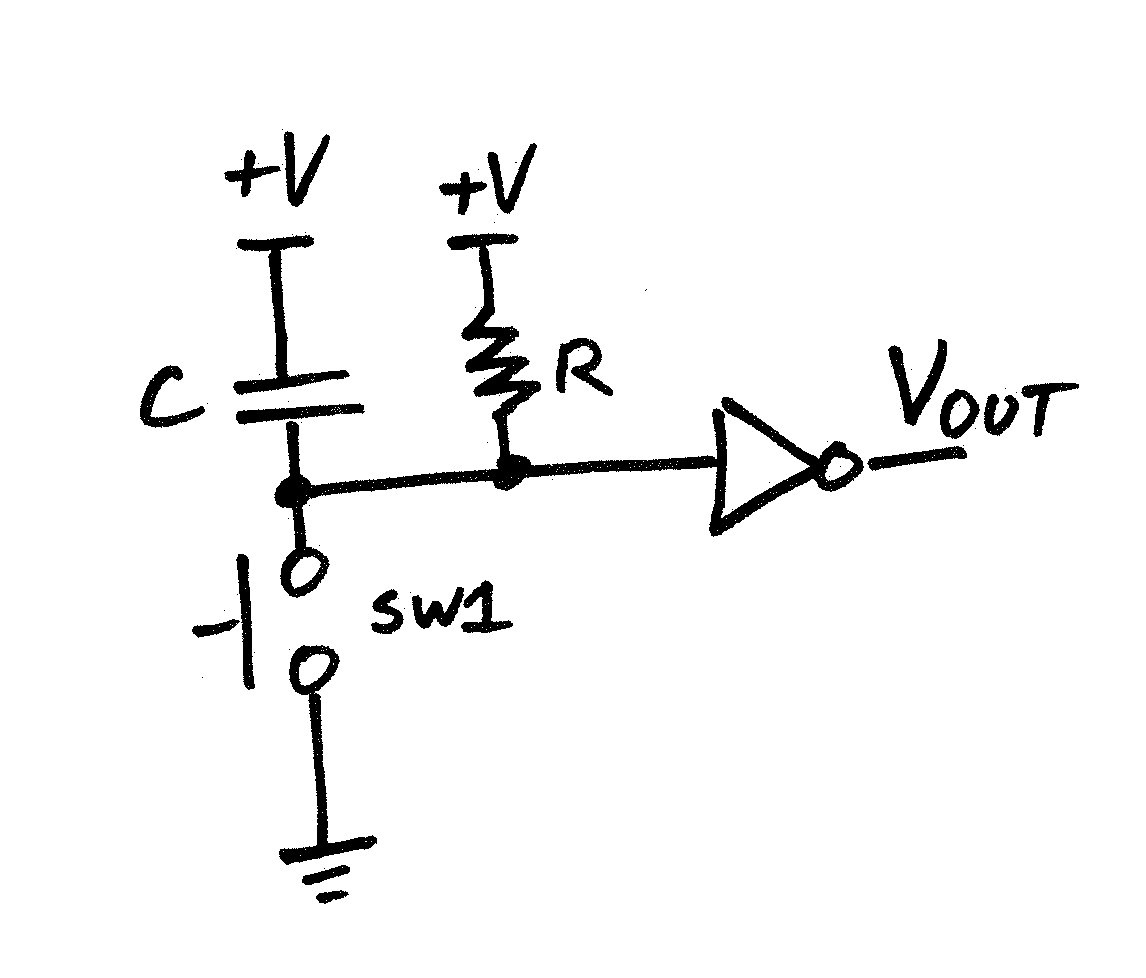 +V
+V
C
R
VOUT
SW1